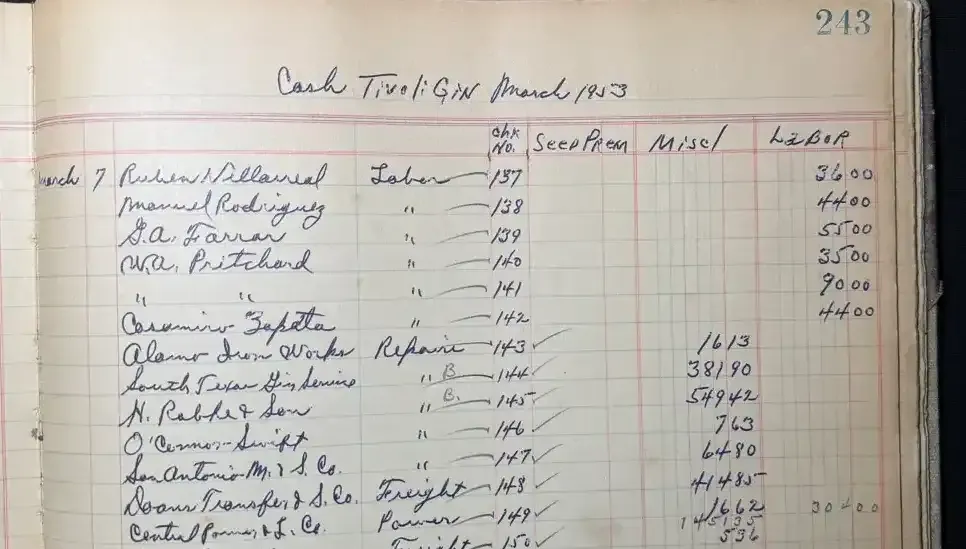 243
Cash Tivoli Gin March 1953
chk No. Seed Prem Miscl Labor
March 7 Ruben Villarreal Labor 137 36 00
Manuel Rodriguez " 138 44 00
G.A. Farrar " 139 55 00
W.A. Pritchard " 140 35 00
" " " 141 90 00
Casamiro Zapata " 142 44 00
Alamo Iron Works Repairs 143 ✓ 16 13
South Texas Gin Service " B 144 ✓ 381 90
H. Rabke & Son " B. 145 ✓ 549 42
O'Connor-Swift " 146 ✓ 7 63
San Antonio M. & S. Co. " 147 ✓ 64 80
Doans Transfer & S. Co. Freight 148 ✓ 414 85
Central Power & L. Co. Power 149 ✓ 16 62
1451 35 304 00
Freight 150 ✓ 5 36